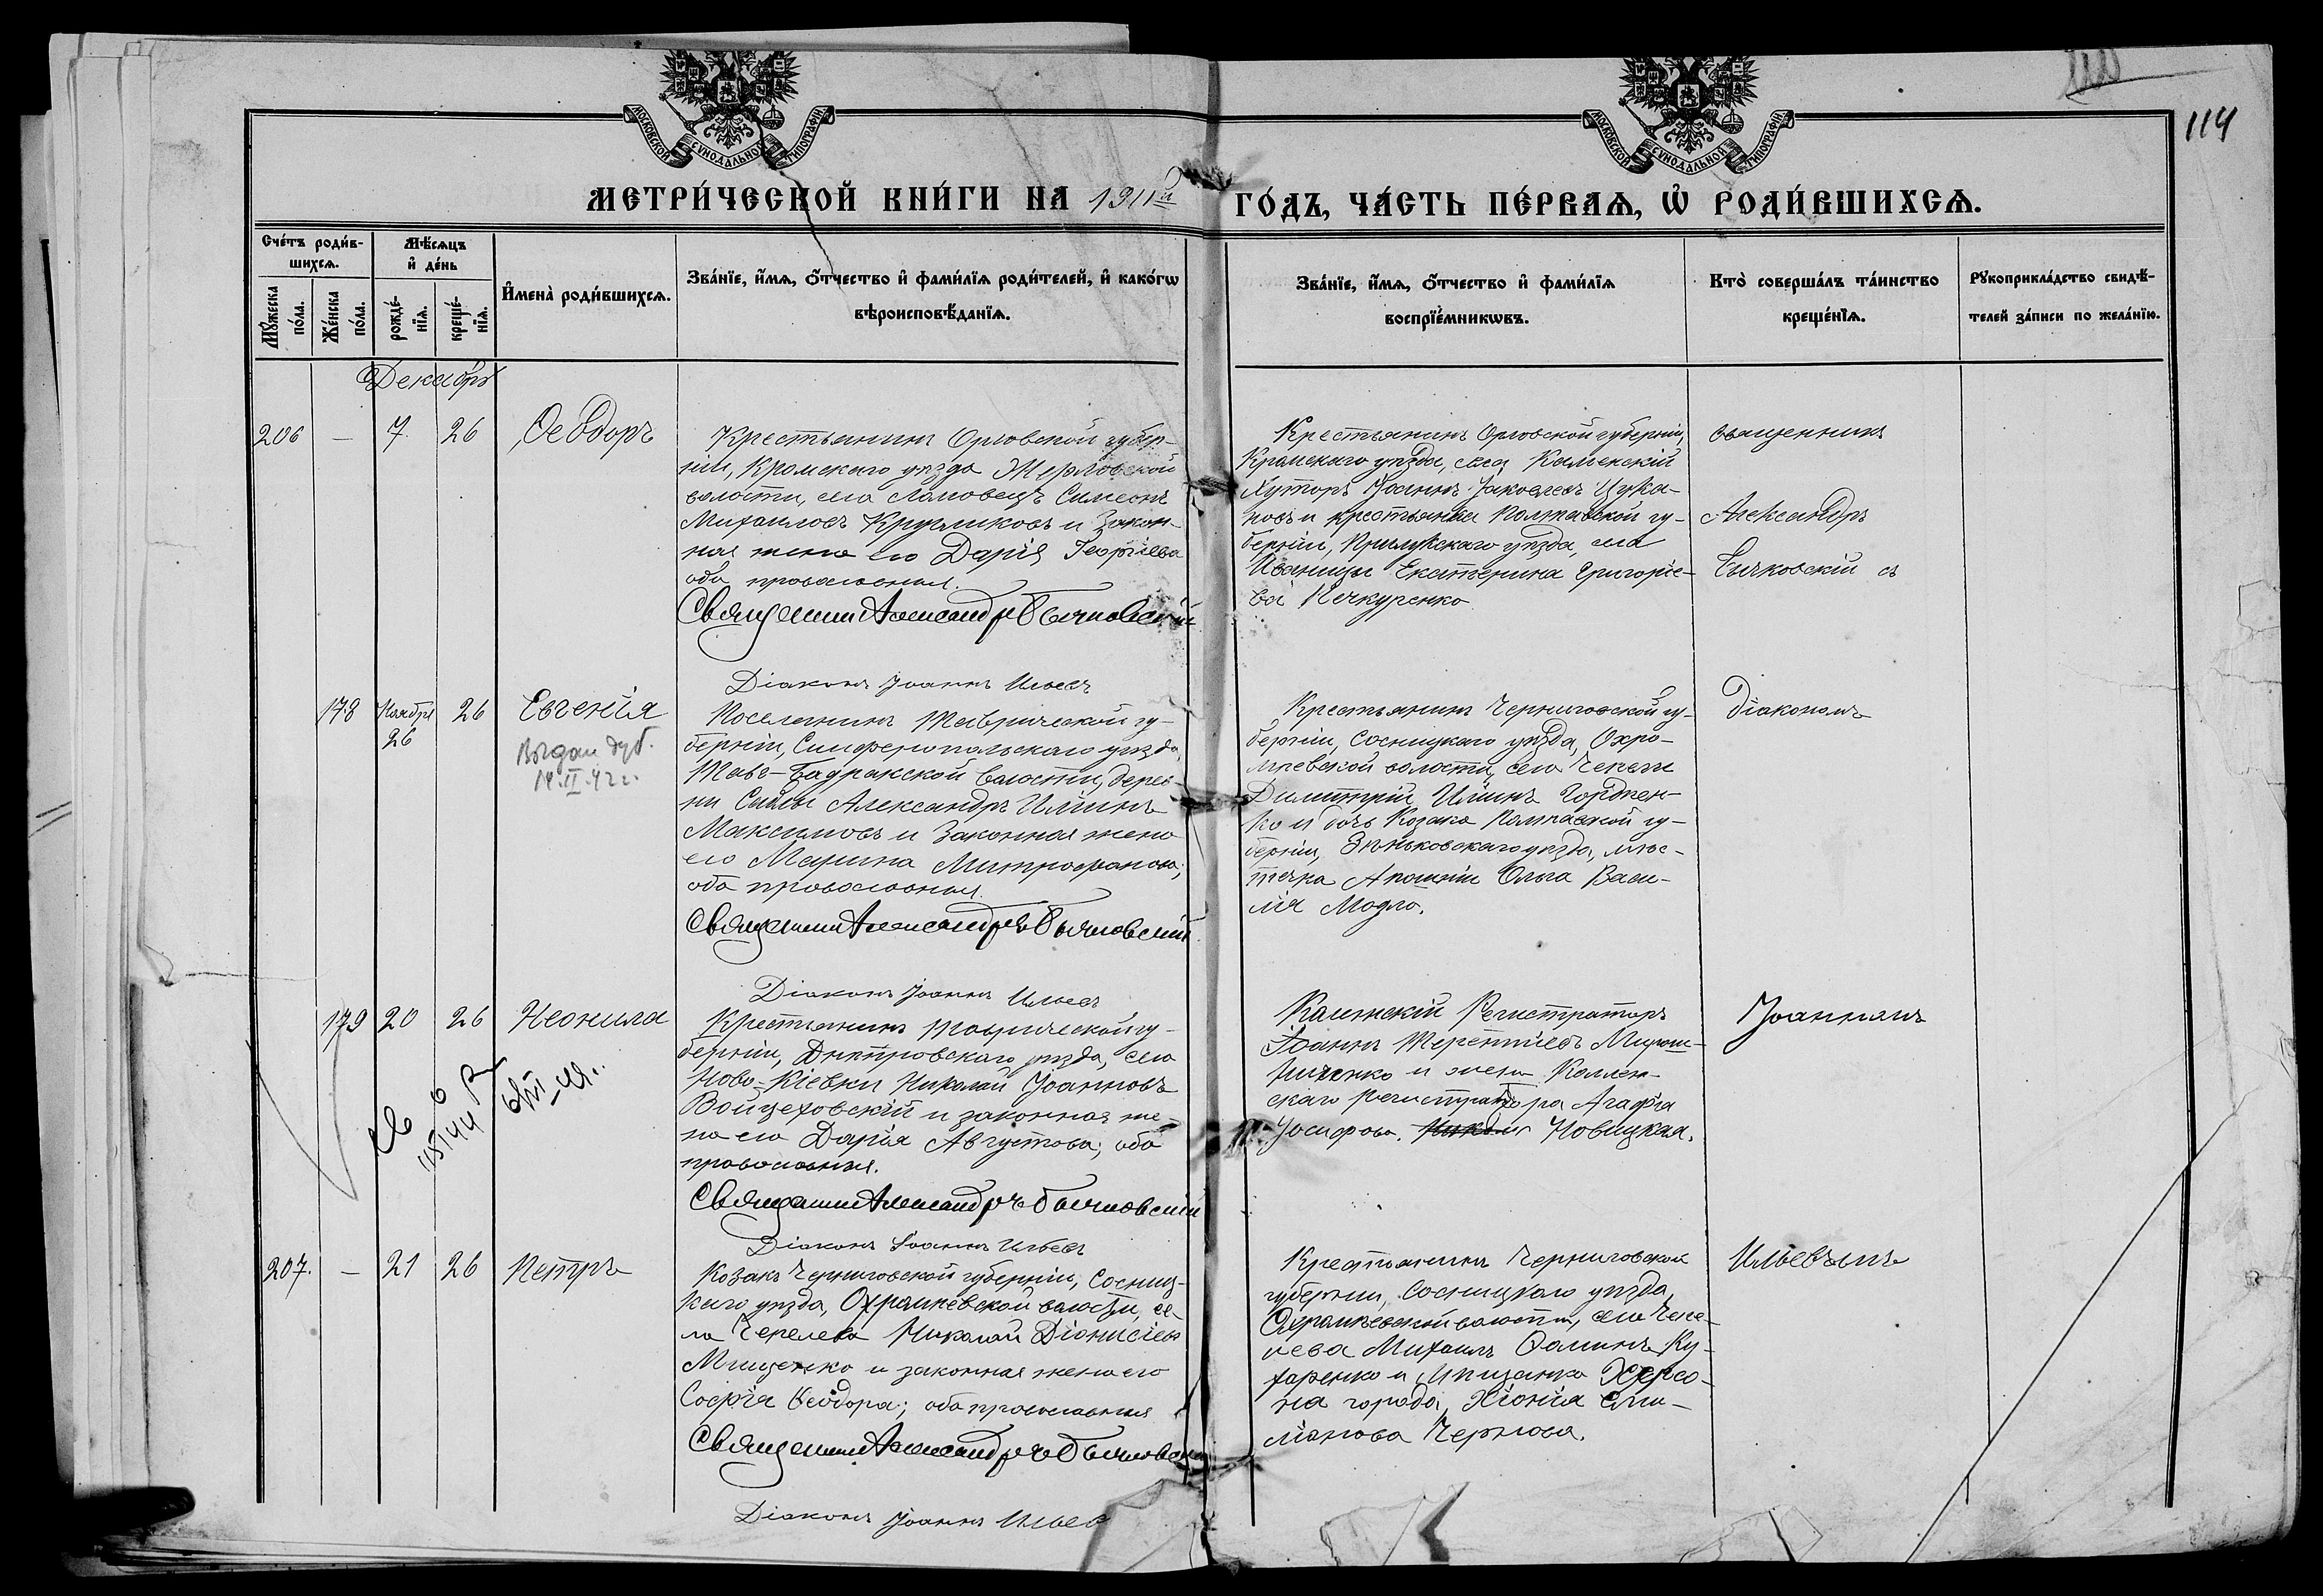 114
МОСКОВСКОЙ СѴНОДАЛЬНОЙ ТИПОГРАФІИ
МОСКОВСКОЙ СѴНОДАЛЬНОЙ ТИПОГРАФІИ
МЕТРИ́ЧЕСКОЙ КНИ́ГИ НА 1911й ГО́ДЪ, ЧА́СТЬ ПЕ́РВАѦ, Ѡ РОДИ́ВШИХСѦ.
Сче́тъ роди́в-
шихсѧ.
Мꙋ́жеска
по́ла.
Же́нска
по́ла.
Мѣ́сѧцъ
и де́нь
рожде́-
нїѧ.
креще́-
нїѧ.
Имена̀ роди́вшихсѧ.
Зва́нїе, и́мѧ, ѻ́тчество и фами́лїѧ роди́телей, и како́гѡ
вѣроисповѣ́данїѧ.
Зва́нїе, и́мѧ, ѻ́тчество и фами́лїѧ
воспрїе́мникѡвъ.
Кто̀ соверша́лъ та́инство
креще́нїѧ.
Рꙋкоприкла́дство свидѣ́-
телей за́писи по жела́нїю.
Декабрь
206 — 7 26 Ѳеодоръ
Крестьянинъ Орловской губер-
ніи, Кромскаго уѣзда
волости, села Ломовецъ Симеонъ
Михаиловъ Кругликовъ и закон-
ная жена его Дарія Георгіева
оба православныя.
Священникъ Александръ Бычковскій
Діаконъ Іоаннъ Ильевъ
Крестьянинъ Орловской губерніи,
Кромскаго уѣзда, села Каменскій
Хуторъ Іоаннъ Іаковлевъ Цука-
новъ и крестьянка Полтавской гу-
берніи, Прилукскаго уѣзда, села
Иваницы Екатерина Григорье-
ва Печкуренко
священникъ
Александръ
Бычковскій съ
178 Ноября 26 26 Евгенія
Выдан дуб.
14.II.42 г.
Поселянинъ Таврической гу-
берніи, Симферопольскаго уѣзда,
Тавс-Бадракской волости, дерев-
ни Саблы Александръ Илiинъ
Максимовъ и законная жена
его Марина Митрофанова;
оба православныя
Священникъ Александръ Бычковскій
Діаконъ Іоаннъ Ильевъ
Крестьянинъ Черниговской гу-
берніи, Сосницкаго уѣзда, Охра-
мѣевской волости, села
Димитрій Илiинъ Гордѣен-
ко и дочь Козака Полтавской гу-
берніи, Зѣньковскаго уѣзда, мѣс-
течка Ольга Васи-
лія
Діакономъ
179 20 26 Неонила
Крестьянинъ Таврической гу-
берніи, Днѣпровскаго уѣзда, села
Ново-Кіевки Николай Іоанновъ
Войцеховскій и законная же-
на его Дарія Августова; оба
православныя.
Священникъ Александръ Бычковскій
Діаконъ Іоаннъ Ильевъ
Іоаннъ Терентіевъ Мирош-
ниченко и жена Коллеж-
скаго регистратора Агафія
Іосифова Новицкая.
Іоанномъ
207. — 21 26 Петръ
Козакъ Черниговской губерніи, Сосниц-
каго уѣзда, Охрамѣевской волости, се-
ла Чепелева Николай Діонисіевъ
Мищенко и законная жена его
Софія Ѳеодора; оба православныя
Священникъ Александръ Бычковскій
Діаконъ Іоаннъ Ильевъ
Крестьянинъ Черниговской
губерніи, Сосницкаго уѣзда,
Охрамѣевской волости, села Чепе-
лева Михаилъ Ѳоминъ Ку-
харенко и мѣщанка Херсо-
на города, Хіонія Еми-
ліанова Чернова.
Ильевымъ